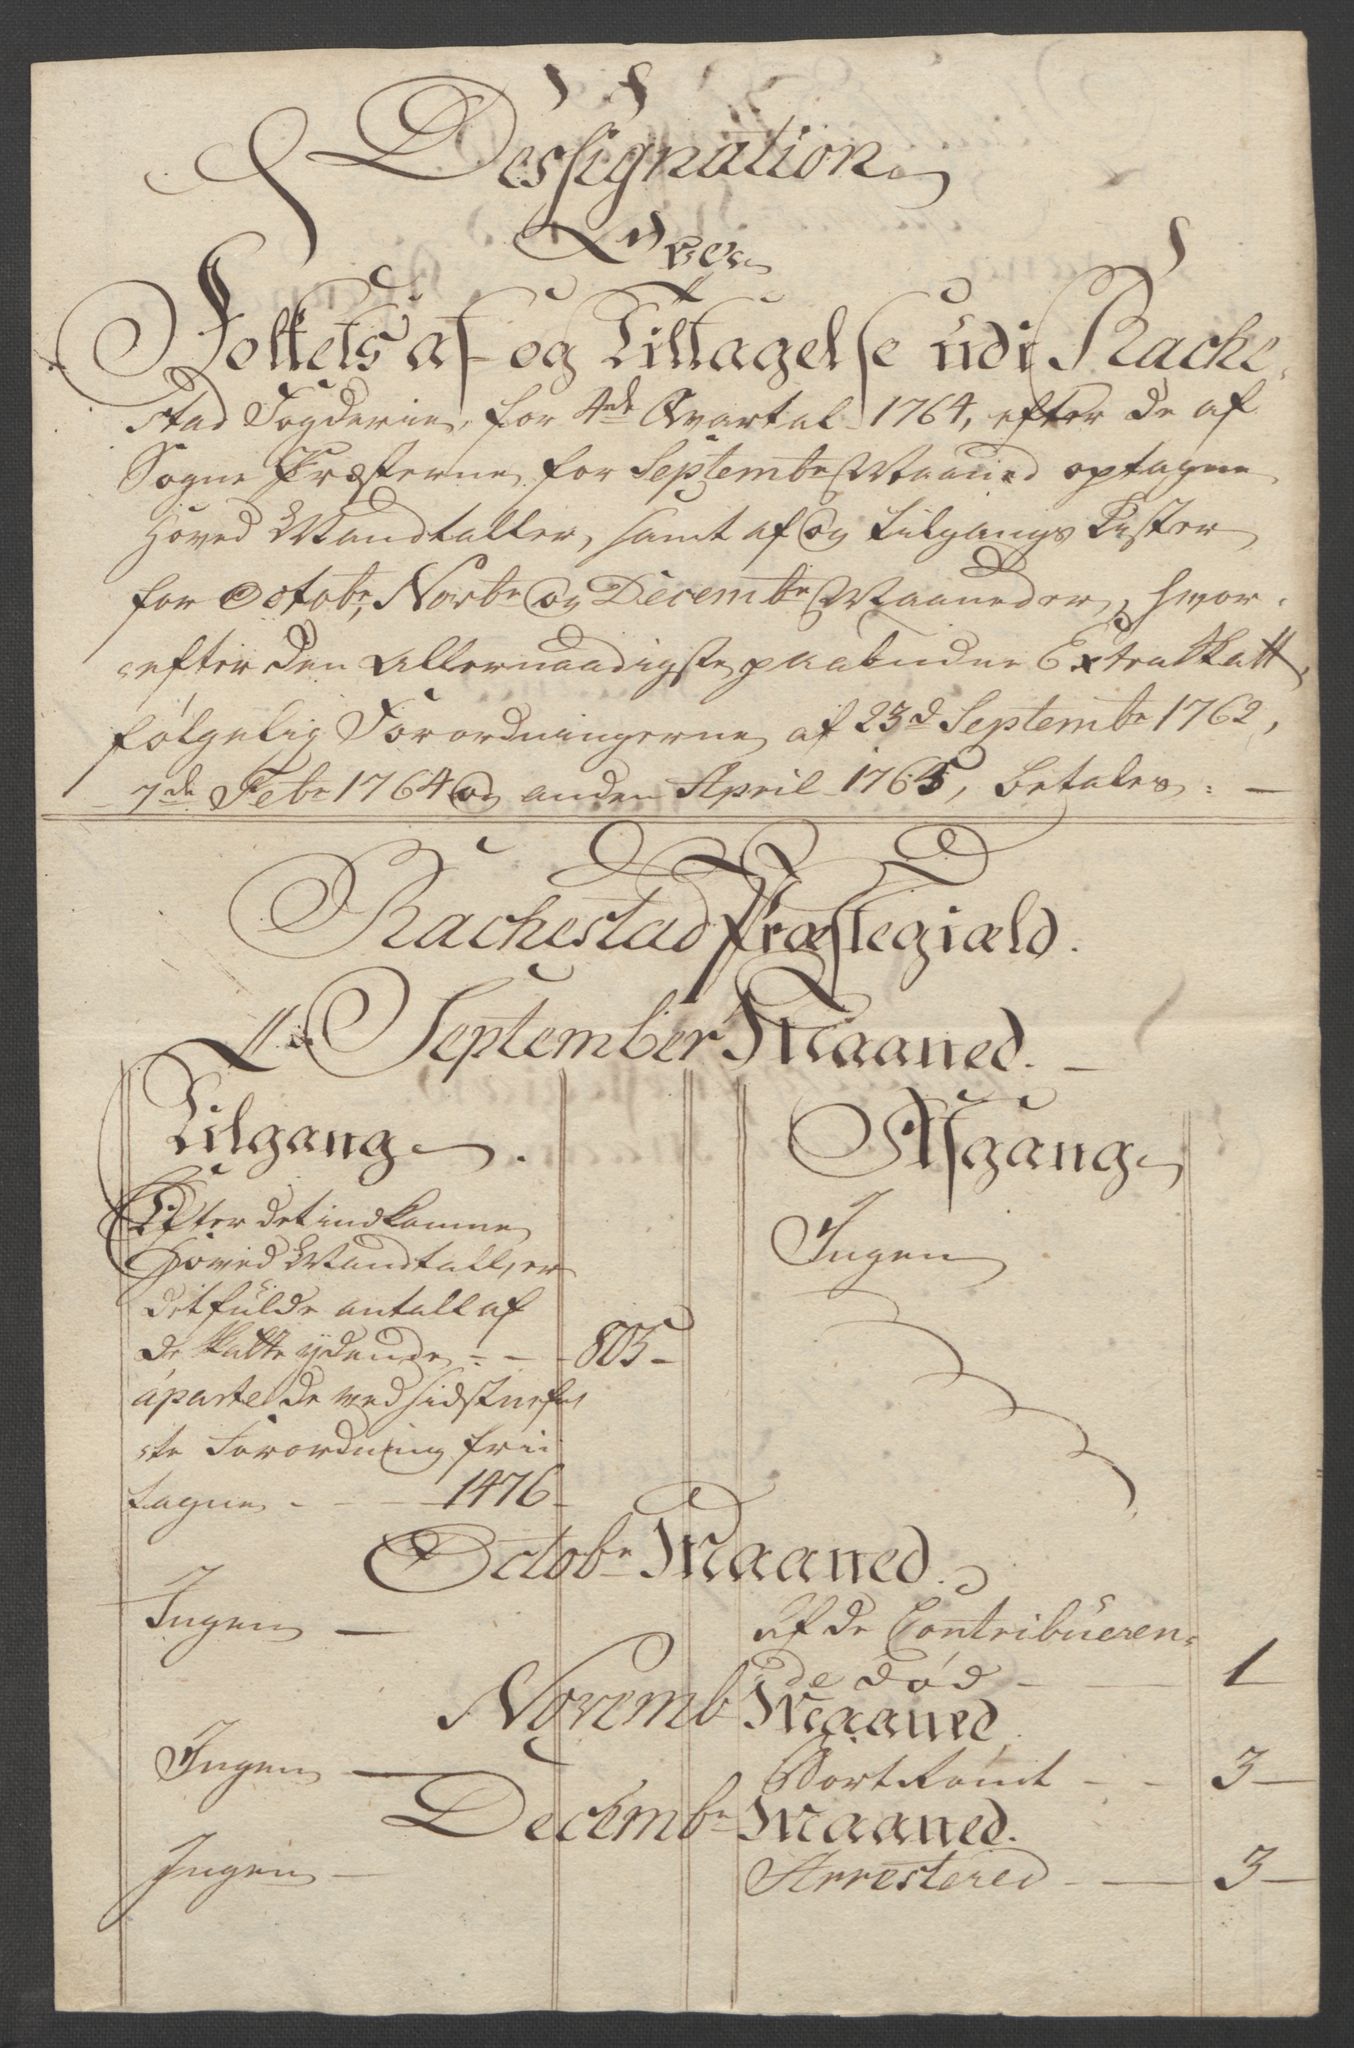 Dessignation
Over
Folkets af- og Tilltagelse udi Rache-
stad Fogderie, for 4de Qvartal 1764, efter de af
Sogne Præsterne for Septembr Maaned optagne
Hoved Mandtaller, samt af og tilgangs Lister
for Octobr, Novbr og Decembr Maaneder, hvor-
efter den allernaadigste paabudne Extra Skatt,
følgelig Forordningerne af 23d Septembr 1762,
7de Febr 1764 og anden April 1765, betales: —
Rachestad Præstegiæld.
September Maaned. —
Tilgang. Afgang
Efter det indkomne Ingen
Hoved Mandtall, er
det fulde antall af
de skatte ydende - - - 803 -
aparte de ved sidstnefn
ste Forordning frii
tagne - - - 1476 -
Octobr Maaned.
Ingen — Af de Contribueren-
de død - — 1
Novemb Maaned
Ingen — Bortrømt - - 3 —
Decembr Maaned.
Ingen — Arrestered - — 3 —